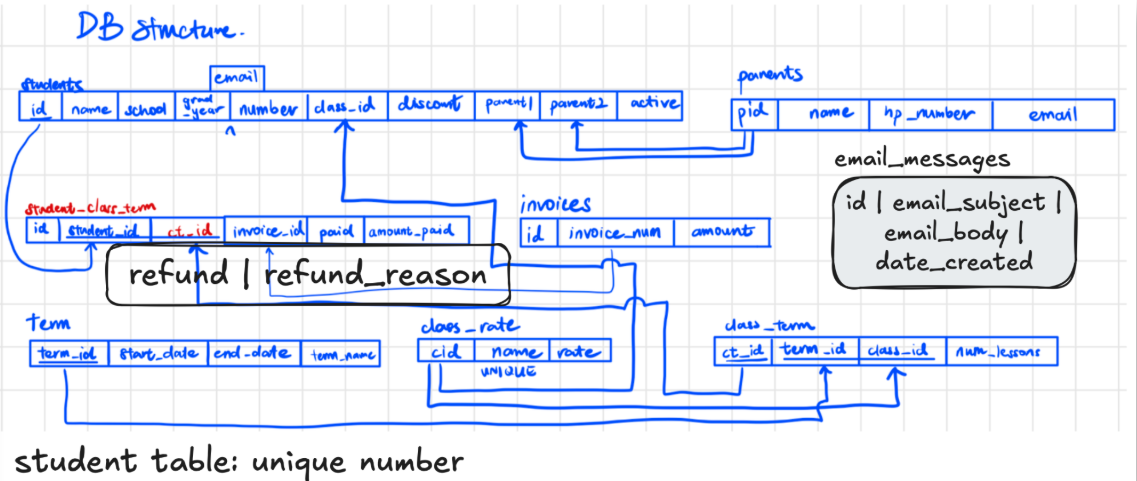 DB Structure.
email
students
id | name | school | grad_year | number | class_id | discount | parent1 | parent2 | active
parents
pid | name | hp_number | email
email_messages
id | email_subject |
email_body |
date_created
student_class_term
id | student_id | ct_id | invoice_id | paid | amount_paid
refund | refund_reason
invoices
id | invoice_num | amount
Term
term_id | start_date | end-date | term_name
class_rate
cid | name | rate
UNIQUE
class_term
ct_id | term_id | class_id | num_lessons
student table: unique number